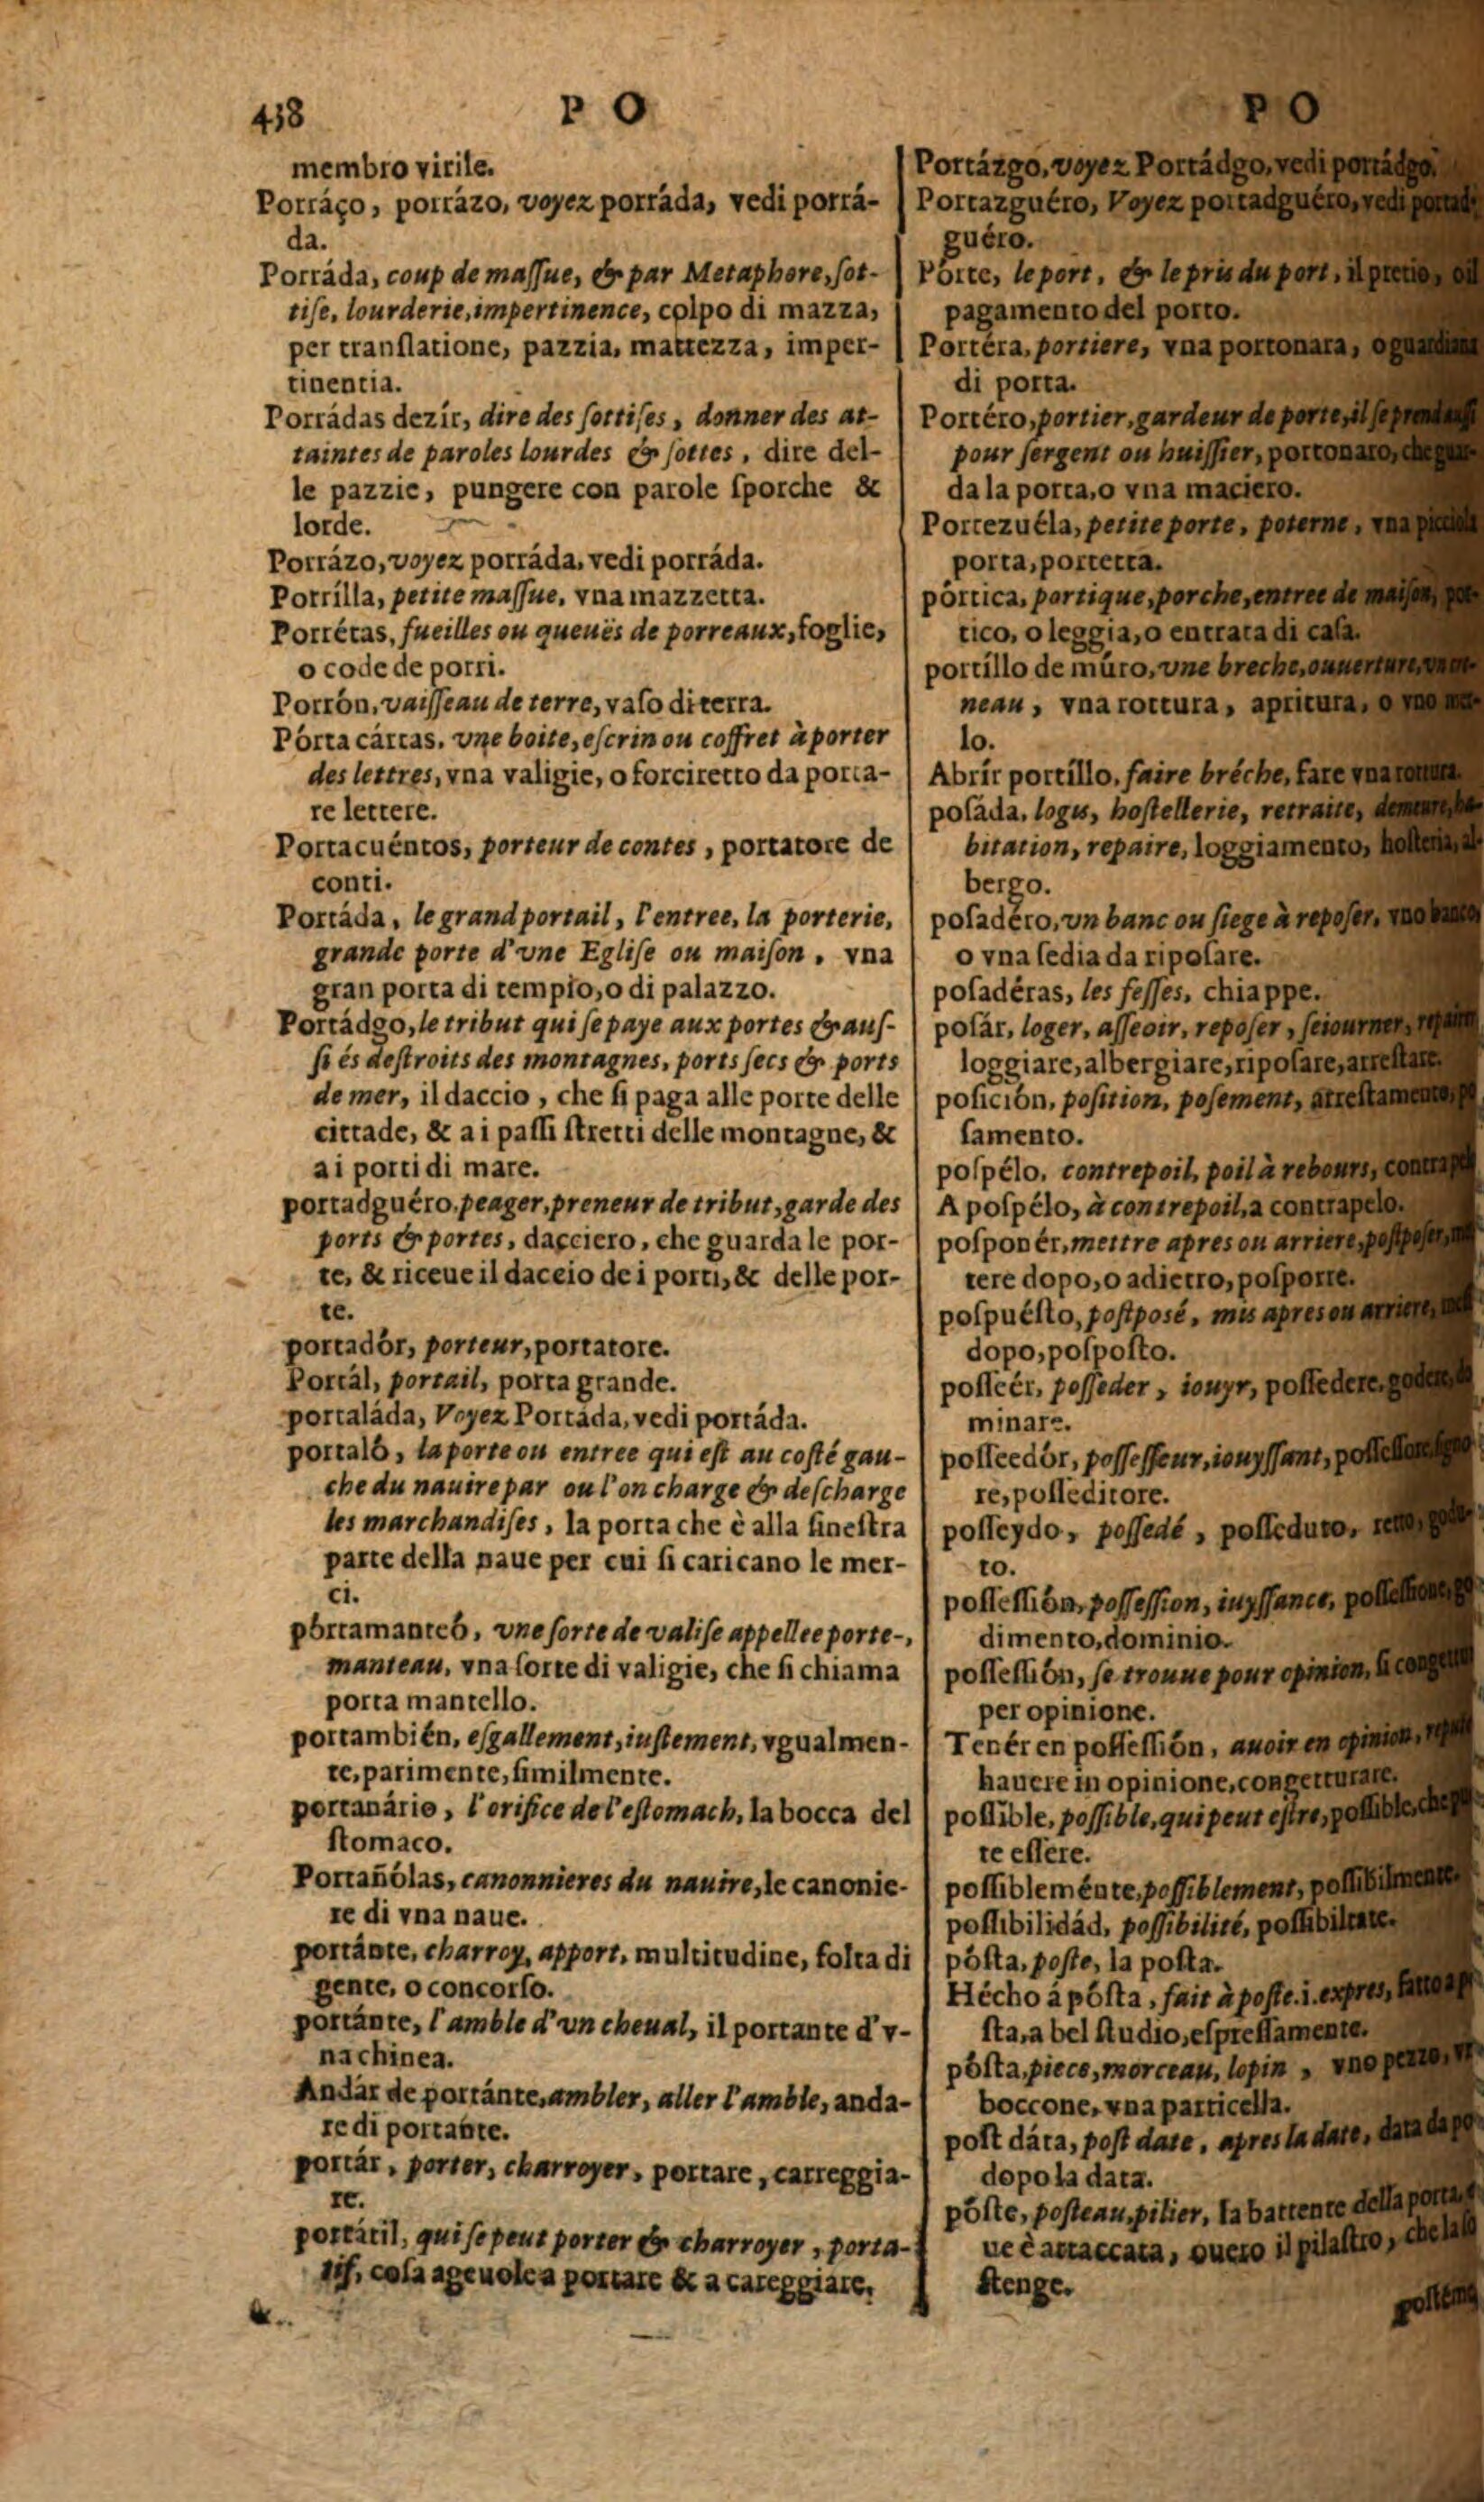 438
P O
membro virile.
Porráço, porrázo, voyez porráda, vedi porrá-
da.
Porráda, coup de maſſue, & par Metaphore, ſot-
tiſe, lourderie, impertinence, colpo di mazza,
per tranſlatione, pazzia, mattezza, imper-
tinentia.
Porrádas dezír, dire des ſottiſes, donner des at-
taintes de paroles lourdes & ſottes, dire del-
le pazzie, pungere con parole ſporche &
lorde.
Porrázo, voyez porráda, vedi porráda.
Porrílla, petite maſſue, vna mazzetta.
Porrétas, fueilles ou queuës de porreaux, foglie,
o code de porri.
Porrón, vaiſſeau de terre, vaſo di terra.
Pórta cártas, vne boite, eſcrin ou coffret à porter
des lettres, vna valigie, o forciretto da porta-
re lettere.
Portacuéntos, porteur de contes, portatore de
conti.
Portáda, le grand portail, l'entree, la porterie,
grande porte d'vne Egliſe ou maiſon, vna
gran porta di tempio, o di palazzo.
Portádgo, le tribut qui ſe paye aux portes & auſ-
ſi és deſtroits des montagnes, ports ſecs & ports
de mer, il daccio, che ſi paga alle porte delle
cittade, & a i paſſi ſtretti delle montagne, &
a i porti di mare.
portadguéro, peager, preneur de tribut, garde des
ports & portes, dacciero, che guarda le por-
te, & riceue il daccio de i porti, & delle por-
te.
portadór, porteur, portatore.
Portál, portail, porta grande.
portaláda, Voyez Portáda, vedi portáda.
portaló, la porte ou entree qui eſt au coſté gau-
che du nauire par ou l'on charge & deſcharge
les marchandiſes, la porta che è alla ſineſtra
parte della naue per cui ſi caricano le mer-
ci.
pórtamanteó, vne ſorte de valiſe appellee porte-,
manteau, vna ſorte di valigie, che ſi chiama
porta mantello.
portambién, eſgallement, iuſtement, vgualmen-
te, parimente, ſimilmente.
portanário, l'orifice de l'eſtomach, la bocca del
ſtomaco.
Portañólas, canonnieres du nauire, le canonie-
re di vna naue.
portánte, charroy, apport, multitudine, folta di
gente, o concorſo.
portánte, l'amble d'vn cheual, il portante d'v-
na chinea.
Andár de portánte, ambler, aller l'amble, anda-
re di portante.
portár, porter, charroyer, portare, carreggia-
re.
portátil, qui ſe peut porter & charroyer, porta-
tif, coſa ageuole a portare & a careggiare,
P O
Portázgo, voyez Portádgo, vedi portádgo.
Portazguéro, Voyez portadguéro, vedi portad-
guéro.
Pórte, le port, & le pris du port, il pretio, oil
pagamento del porto.
Portéra, portiere, vna portonara, o guardiana
di porta.
Portéro, portier, gardeur de porte, il ſe prend auſſi
pour ſergent ou huiſſier, portonaro, che guar-
da la porta, o vna maciero.
Portezuéla, petite porte, poterne, vna picciola
porta, portetta.
pórtica, portique, porche, entree de maiſon, por-
tico, o leggia, o entrata di caſa.
portíllo de múro, vne breche, ouuerture,
neau, vna rottura, apritura, o vno
lo.
Abrír portíllo, faire bréche, fare vna rottura.
poſáda, logis, hoſtellerie, retraite, demeure, ha-
bitation, repaire, loggiamento, hoſteria, al-
bergo.
poſadéro, vn banc ou ſiege à repoſer, vno banco,
o vna ſedia da ripoſare.
poſadéras, les feſſes, chiappe.
poſár, loger, aſſeoir, repoſer, ſeiourner,
loggiare, albergiare, ripoſare, arreſtare.
poſición, poſition, poſement, arreſtamento, po
ſamento.
poſpélo, contrepoil, poil à rebours,
A poſpélo, à contrepoil, a contrapelo.
poſponér, mettre apres ou arriere, poſtpoſer,
tere dopo, o adietro, poſporre.
poſpuéſto, poſtposé, mis apres ou arriere,
dopo, poſpoſto.
poſſeér, poſſeder, iouyr, poſſedere, godere, do
minare.
poſſeedór, poſſeſſeur, iouyſſant, poſſeſſore, ſigno
re, poſſeditore.
poſſeydo, poſſedé, poſſeduto,
to.
poſſeſſión, poſſeſſion, iuyſſance, poſſeſſione, go
dimento, dominio.
poſſeſſión, ſe trouue pour opinion,
per opinione.
Tenér en poſſeſſión, auoir en opinion,
hauere in opinione, congetturare.
poſſible, poſſible, qui peut eſtre, poſſible,
te eſſere.
poſſibleménte, poſſiblement, poſſibilmente.
poſſibilidád, poſſibilité, poſſibiltate.
póſta, poſte, la poſta.
Hécho á póſta, fait à poſte. i. expres, fatto a po
ſta, a bel ſtudio, eſpreſſamente.
póſta, piece, morceau, lopin, vno pezzo,
boccone, vna particella.
poſt dáta, poſt date, apres la date, data da po
dopo la data.
póſte, poſteau, pilier, la battente della porta,
ue è attaccata, ouero il pilaſtro, che la ſo
ſtenge.